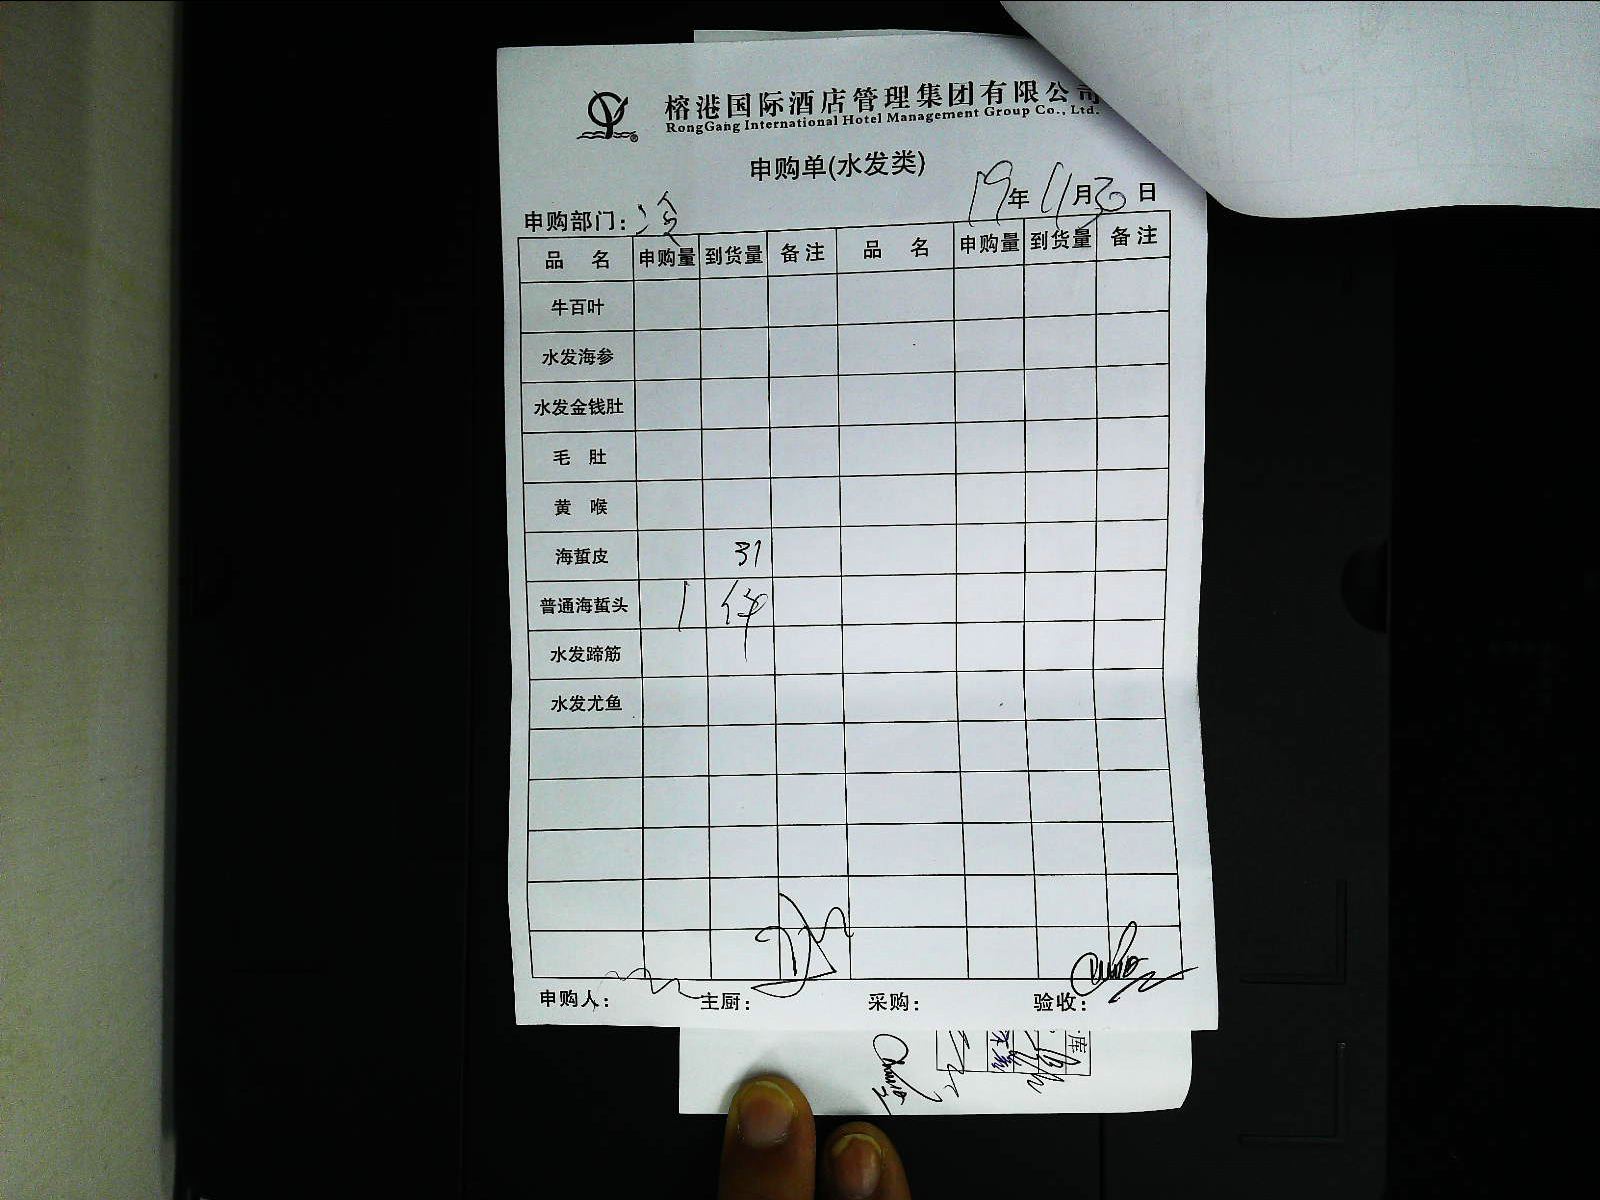 榕港国际酒店管理集团有限公司
RongGang International Hotel Management Group Co., Ltd.
申购单(水发类)
19年 11月 日
申购部门: 冷
品 名 申购量 到货量 备注 品 名 申购量 到货量 备注
牛百叶
水发海参
水发金钱肚
毛 肚
黄 喉
海蜇皮 31
普通海蜇头 1 件
水发蹄筋
水发尤鱼
申购人: 主厨: 采购: 验收:
库